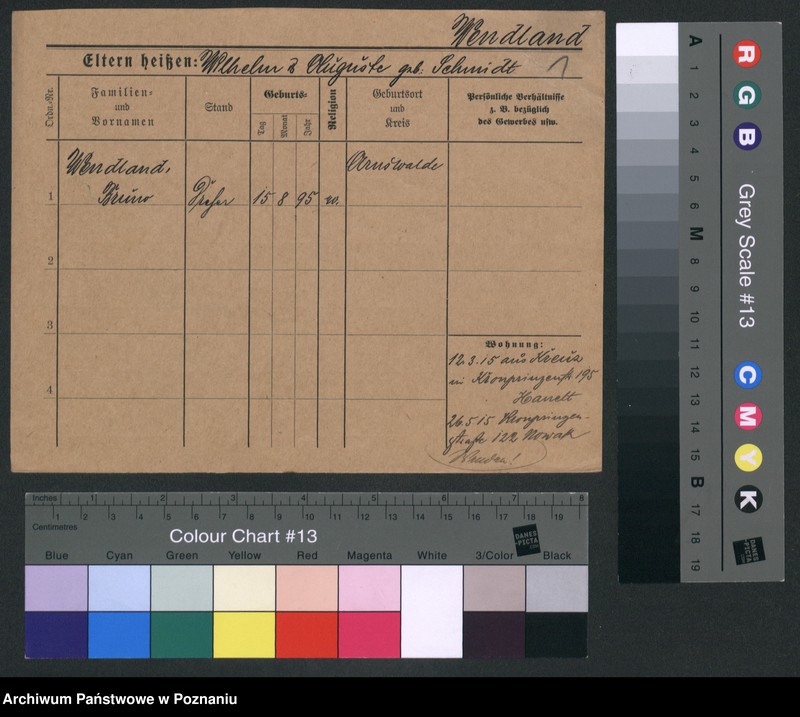 Wendland
Eltern heißen: Wilhelm & Auguste geb. Schmidt
Ordn.-Nr.
Familien-
und
Vornamen
Stand
Geburts-
Tag
Monat
Jahr
Religion
Geburtsort
und
Kreis
Persönliche Verhältnisse
z. B. bezüglich
des Gewerbes usw.
Wendland, Arnswalde
1 Bruno Dreher 15 8 95 ev.
2
3
4
Wohnung:
12.3.15 aus Kreuz
in Kronprinzenstr 195
26.5.15 Kronprinzen-
straße 122 Nowak
A 1 2 3 4 5 6 M 8 9 10 11 12 13 14 15 B 17 18 19
R G B
Grey Scale #13
C M Y K
DANES
PICTA
Inches 1 2 3 4 5 6 7 8
Centimetres 1 2 3 4 5 6 7 8 9 10 11 12 13 14 15 16 17 18 19
Colour Chart #13
DANES
PICTA
Blue Cyan Green Yellow Red Magenta White 3/Color Black
Archiwum Państwowe w Poznaniu